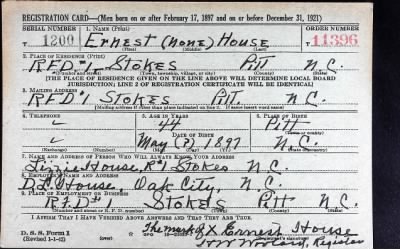 REGISTRATION CARD—(Men born on or after February 17, 1897 and on or before December 31, 1921)
SERIAL NUMBER 1. NAME (Print) ORDER NUMBER
T 1200 Ernest (none) House T 11396
(First) (Middle) (Last)
2. PLACE OF RESIDENCE (Print)
RFD#1 Stokes Pitt N.C.
(Number and street) (Town, township, village, or city) (County) (State)
[THE PLACE OF RESIDENCE GIVEN ON THE LINE ABOVE WILL DETERMINE LOCAL BOARD
JURISDICTION; LINE 2 OF REGISTRATION CERTIFICATE WILL BE IDENTICAL]
3. MAILING ADDRESS
RFD#1 Stokes Pitt. N.C.
[Mailing address if other than place indicated on line 2. If same insert word same]
4. TELEPHONE 5. AGE IN YEARS 6. PLACE OF BIRTH
44 Pitt
DATE OF BIRTH
May (?) 1897 N.C.
7. NAME AND ADDRESS OF PERSON WHO WILL ALWAYS KNOW YOUR ADDRESS
Lizzie House, R#1 Stokes N.C.
8. EMPLOYER'S NAME AND ADDRESS
House, Oak City, N.C.
9. PLACE OF EMPLOYMENT OR BUSINESS
R.F.D#1 Stokes Pitt N.C.
(Number and street or R. F. D. number) (Town) (County) (State)
I AFFIRM THAT I HAVE VERIFIED ABOVE ANSWERS AND THAT THEY ARE TRUE.
D. S. S. Form 1 The mark of X Ernest House
(Revised 1-1-42) Registrar